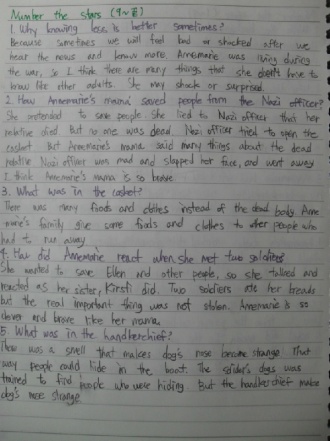 Number the stars (9~끝)
1. Why knowing less is better sometimes?
Because sometimes we will feel bad or shocked after we
hear the news and know more. Annemarie was living during
the war, so I think there are many things that she don't have to
know like other adults. She may shock or surprised.
2. How Annemarie's mama saved people from the Nazi officer?
She pretended to save people. She lied to Nazi officer that her
relative died But no one was dead. Nazi officer tried to open the
casket But Annemarie's mama said many things about the dead
relative Nazi officer was mad and slapped her face, and went away
I think Annemarie's mama is so brave.
3. What was in the casket?
There was many foods and clothes instead of the dead body Anne
marie's family give some foods and clothes to other people who
had to run away.
4. How did Annemarie react when she met two soldiers
She wanted to save Ellen and other people, so she talked and
reacted as her sister, Kirsti did. Two soldiers ate her breads
but the real important thing was not stolen. Annemarie is so
clever and brave like her mama.
5. What was in the handkerchief?
There was a smell that makes dog's nose become strange. That
way people could hide in the boat. The soldier's dogs was
trained to find people who were hiding But the handkerchief makes
dog's nose strange